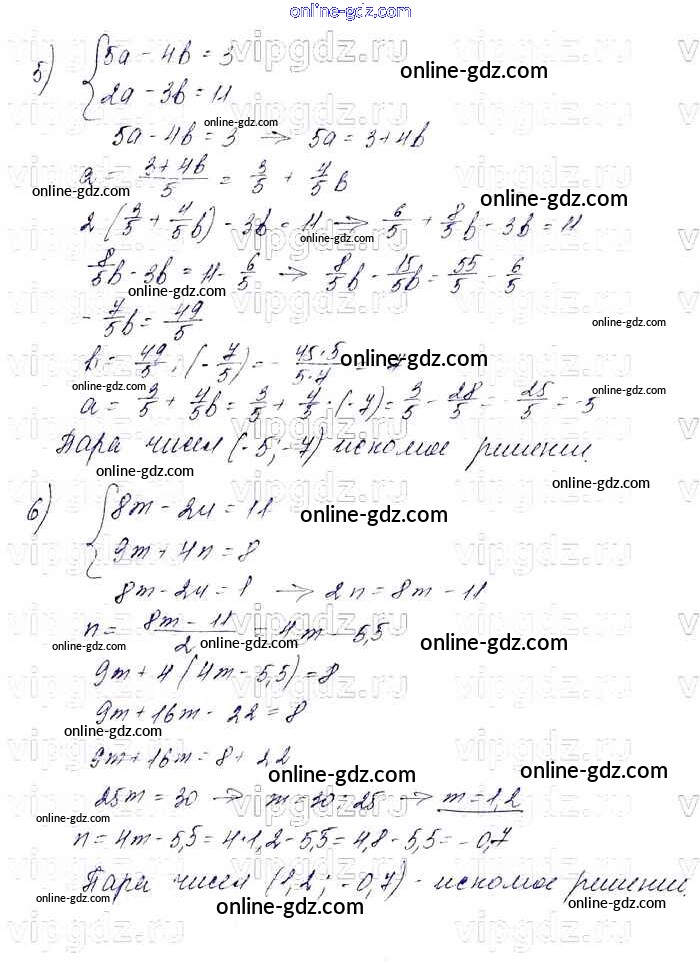 online-gdz.com
5) { 5a - 4b = 3
2a - 3b = 11
online-gdz.com
online-gdz.com
5a - 4b = 3 → 5a = 3 + 4b
a = (3 + 4b)/5 = 3/5 + 4/5 b
online-gdz.com
online-gdz.com
2 (3/5 + 4/5 b) - 3b = 11 → 6/5 + 8/5 b - 3b = 11
online-gdz.com
8/5 b - 3b = 11 - 6/5 → 8/5 b - 15/5 b = 55/5 - 6/5
online-gdz.com
- 7/5 b = 49/5
online-gdz.com
b = 49/5 : (- 7/5) = - 45·5/5·7 = - 7
online-gdz.com
online-gdz.com
online-gdz.com
a = 3/5 + 4/5 b = 3/5 + 4/5 · (-7) = 3/5 - 28/5 = - 25/5 = -5
Пара чисел (-5; -7) искомое решении.
online-gdz.com
online-gdz.com
6) { 8m - 2n = 11
9m + 4n = 8
online-gdz.com
8m - 2n = 1 → 2n = 8m - 11
n = (8m - 11)/2 = 4m - 5,5
online-gdz.com
online-gdz.com
online-gdz.com
9m + 4 (4m - 5,5) = 8
9m + 16m - 22 = 8
online-gdz.com
9m + 16m = 8 + 22
online-gdz.com
online-gdz.com
25m = 30 → m = 30 : 25 → m = 1,2
online-gdz.com
n = 4m - 5,5 = 4·1,2 - 5,5 = 4,8 - 5,5 = - 0,7
Пара чисел (1,2; -0,7) - искомое решении.
online-gdz.com
online-gdz.com